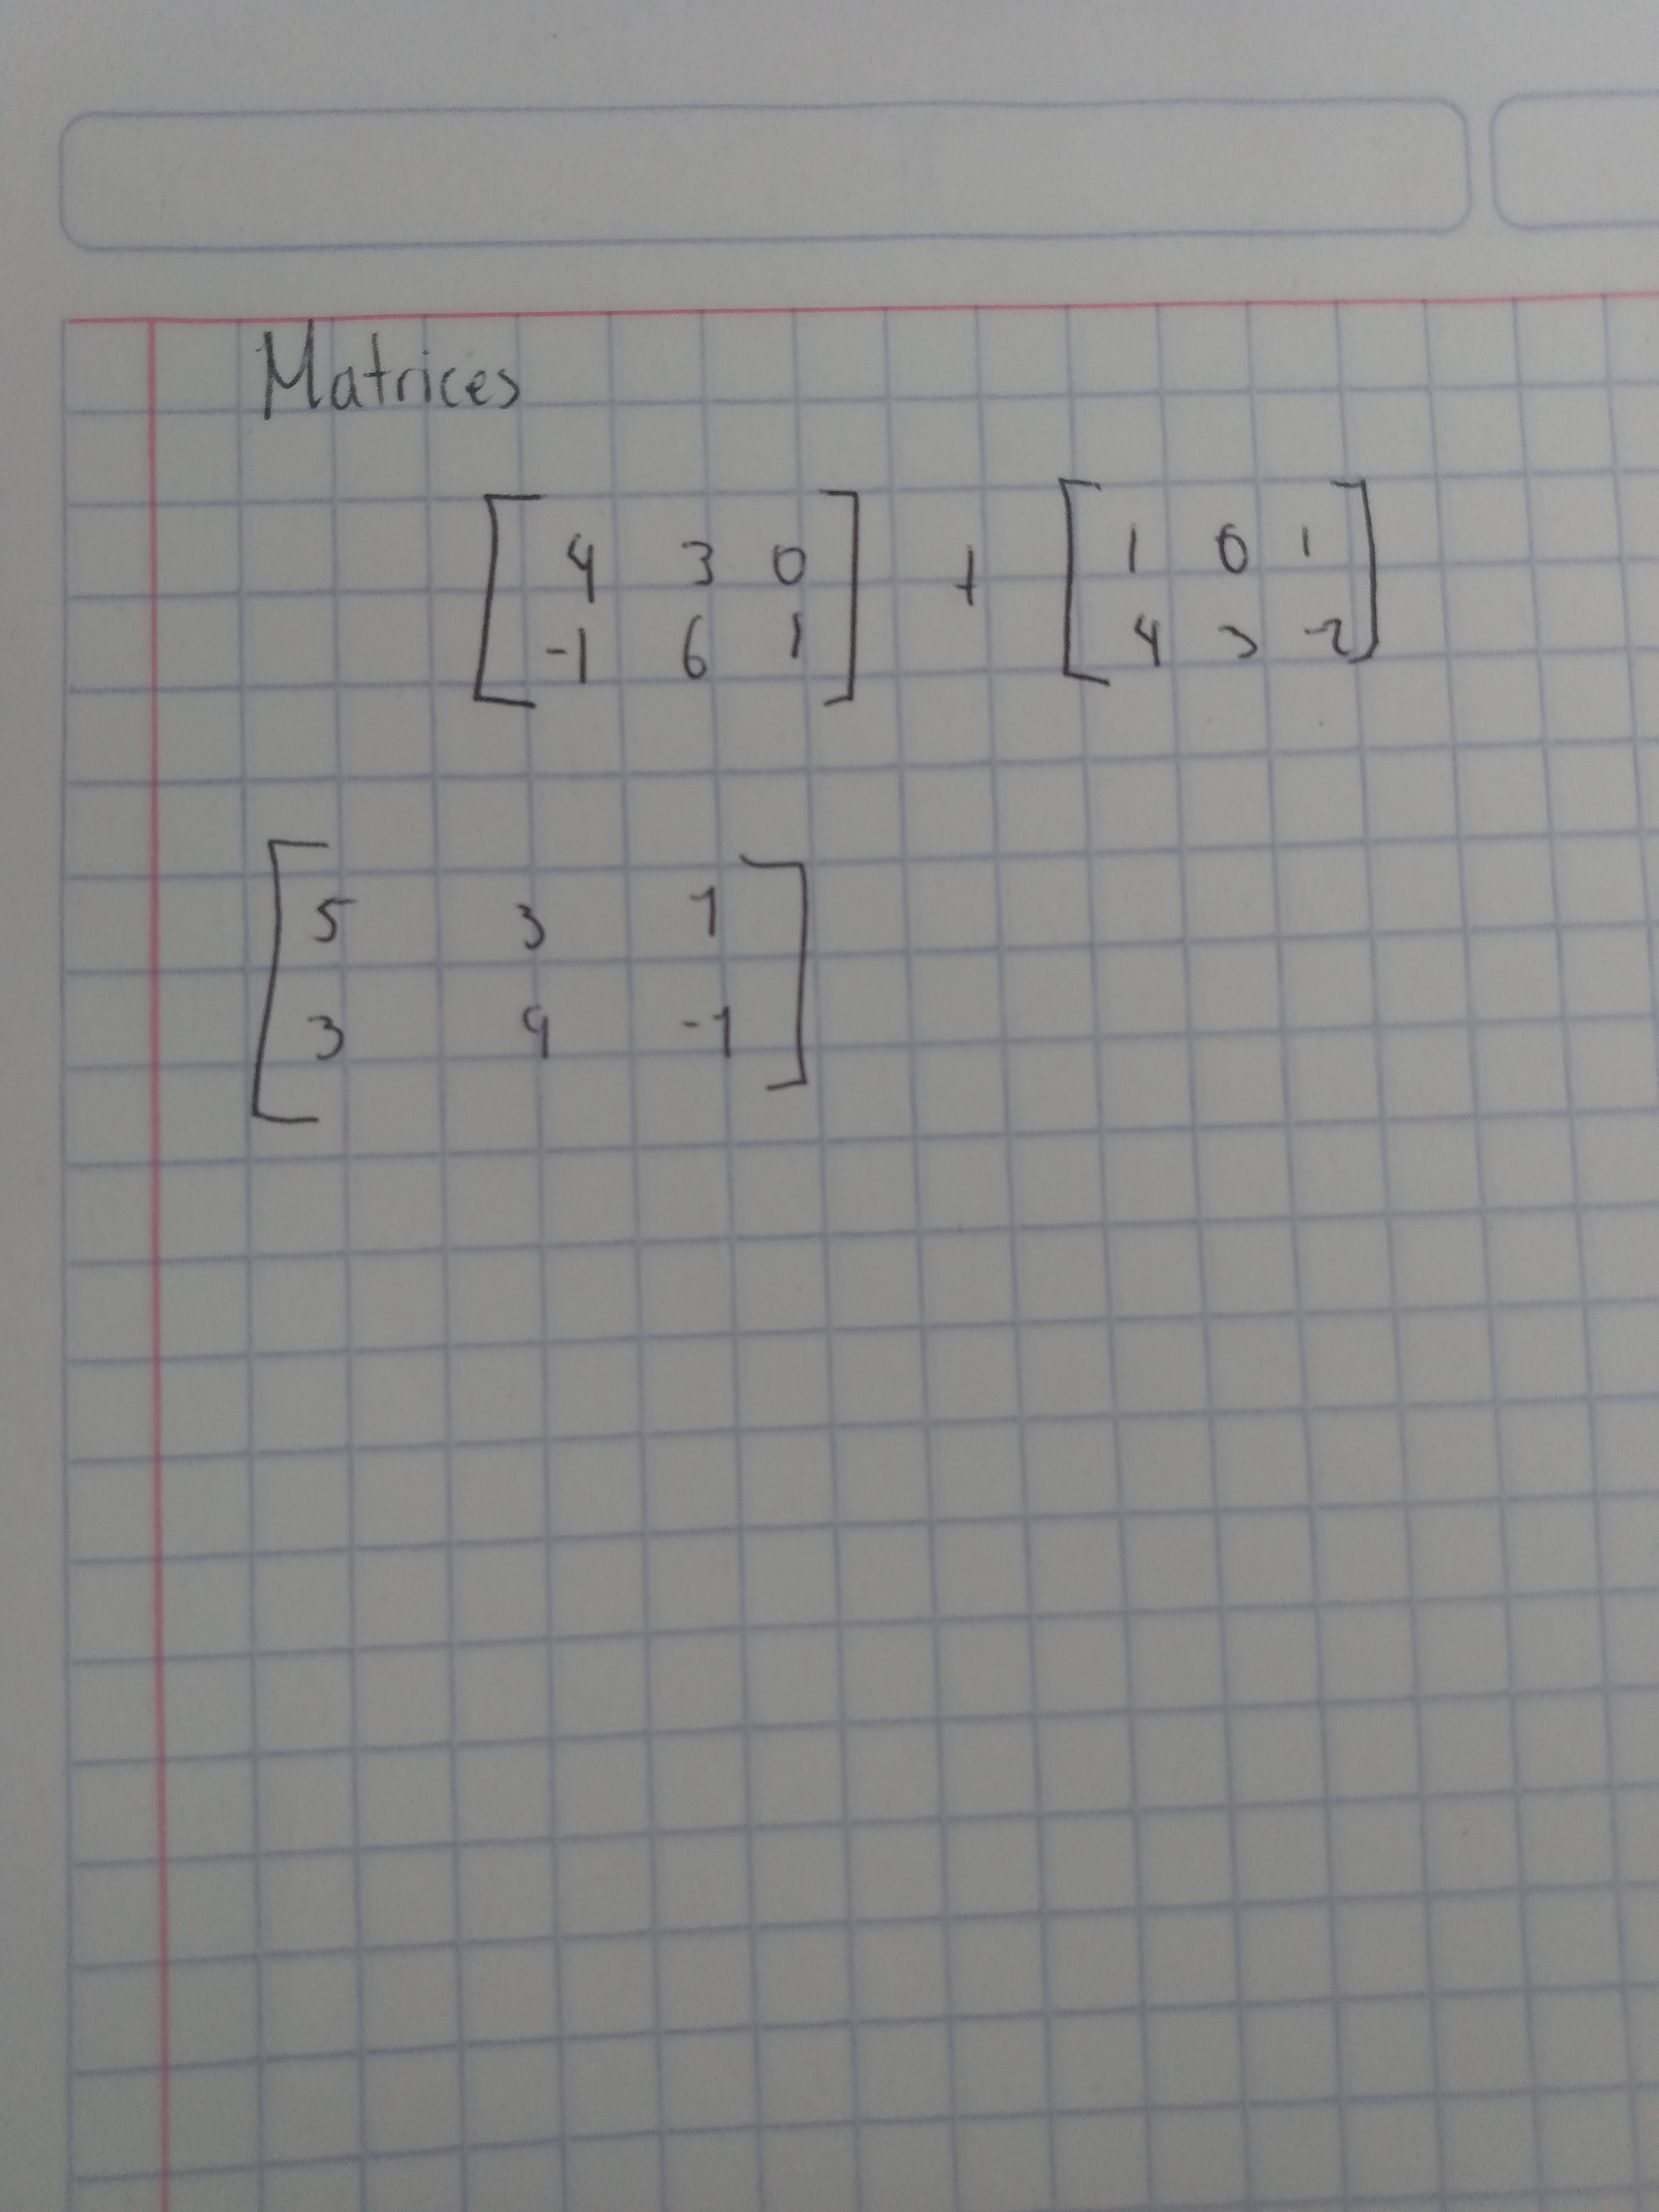 Matrices
[ 4 3 0 ] + [ 1 0 1 ]
[ -1 6 1 ] [ 4 3 -2 ]
[ 5 3 1 ]
[ 3 9 -1 ]